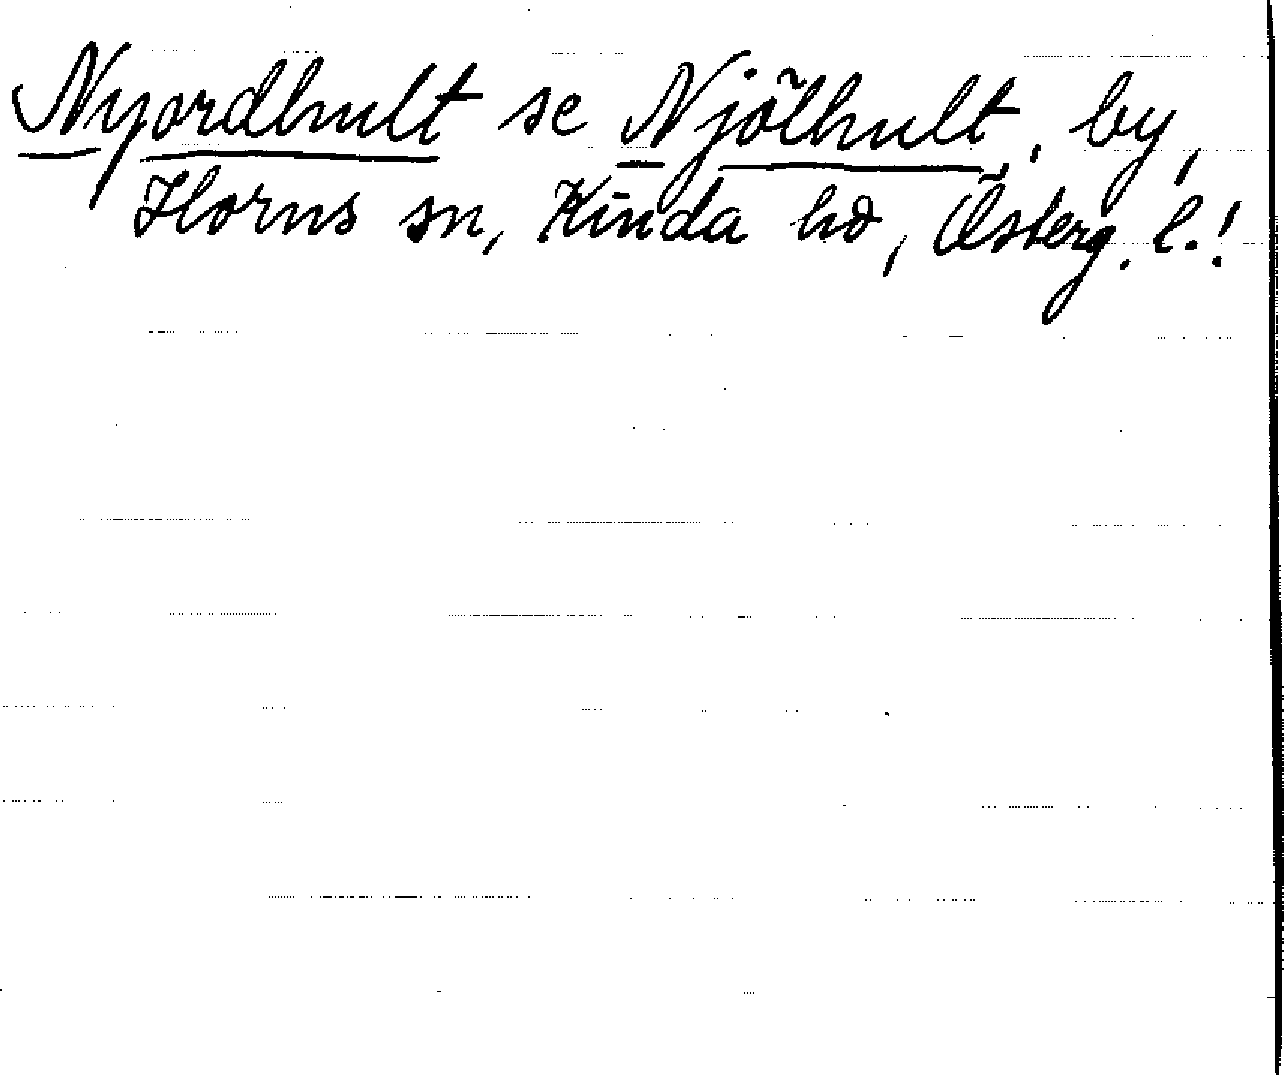 Nyordhult se Njölhult, by,
Horns sn, Kinda hd, Österg. l.!